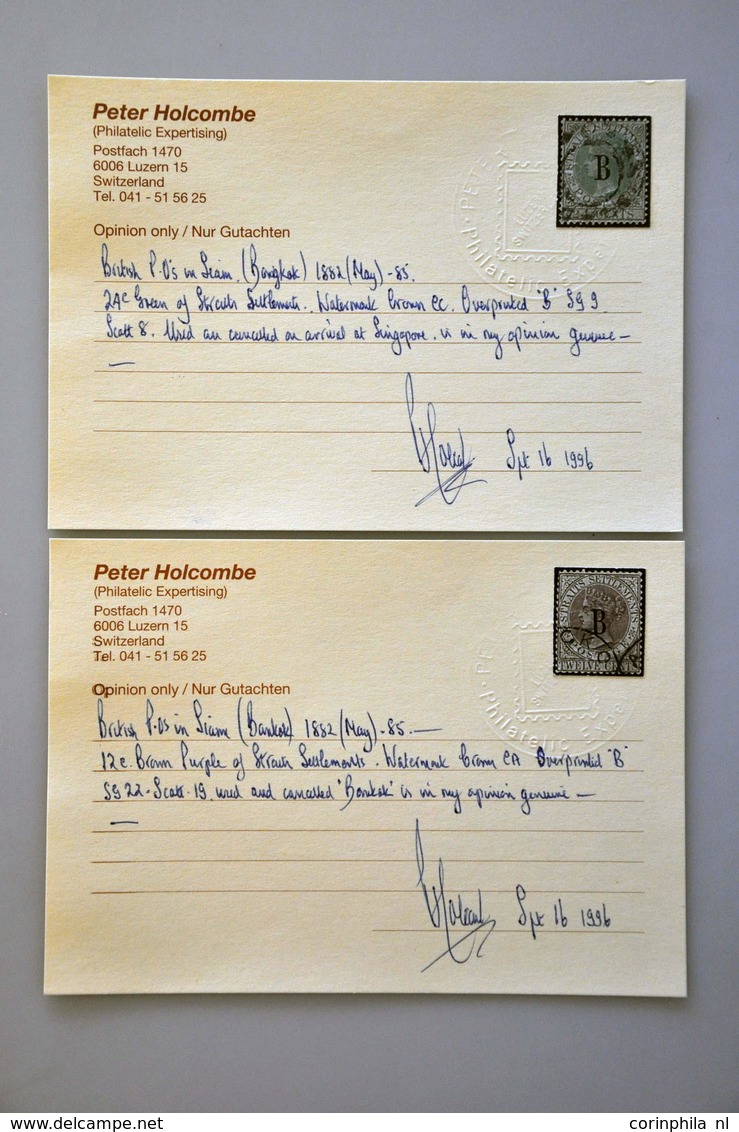 Peter Holcombe
(Philatelic Expertising)
Postfach 1470
6006 Luzern 15
Switzerland
Tel. 041 - 51 56 25
B
Opinion only / Nur Gutachten
British P.O's in Siam. (Bangkok) 1882 (May) - 85.
24c Green of Straits Settlements. Watermark Crown CC. Overprinted "B" SG 9
Scott 8. Used and cancelled on arrival at Singapore. is in my opinion genuine —
—
Sept 16 1996
Peter Holcombe
(Philatelic Expertising)
Postfach 1470
6006 Luzern 15
Switzerland
Tel. 041 - 51 56 25
STRAITS SETTLEMENTS
B
TWELVE CENTS
Opinion only / Nur Gutachten
British P.Os in Siam (Bankok) 1882 (May) - 85. —
12c. Brown Purple of Straits Settlements. Watermark Crown CA Overprinted "B"
SG 22 - Scott 19. used and cancelled 'Bankok' is in my opinion genuine —
—
Sept 16 1996
www.delcampe.net
corinphila nl